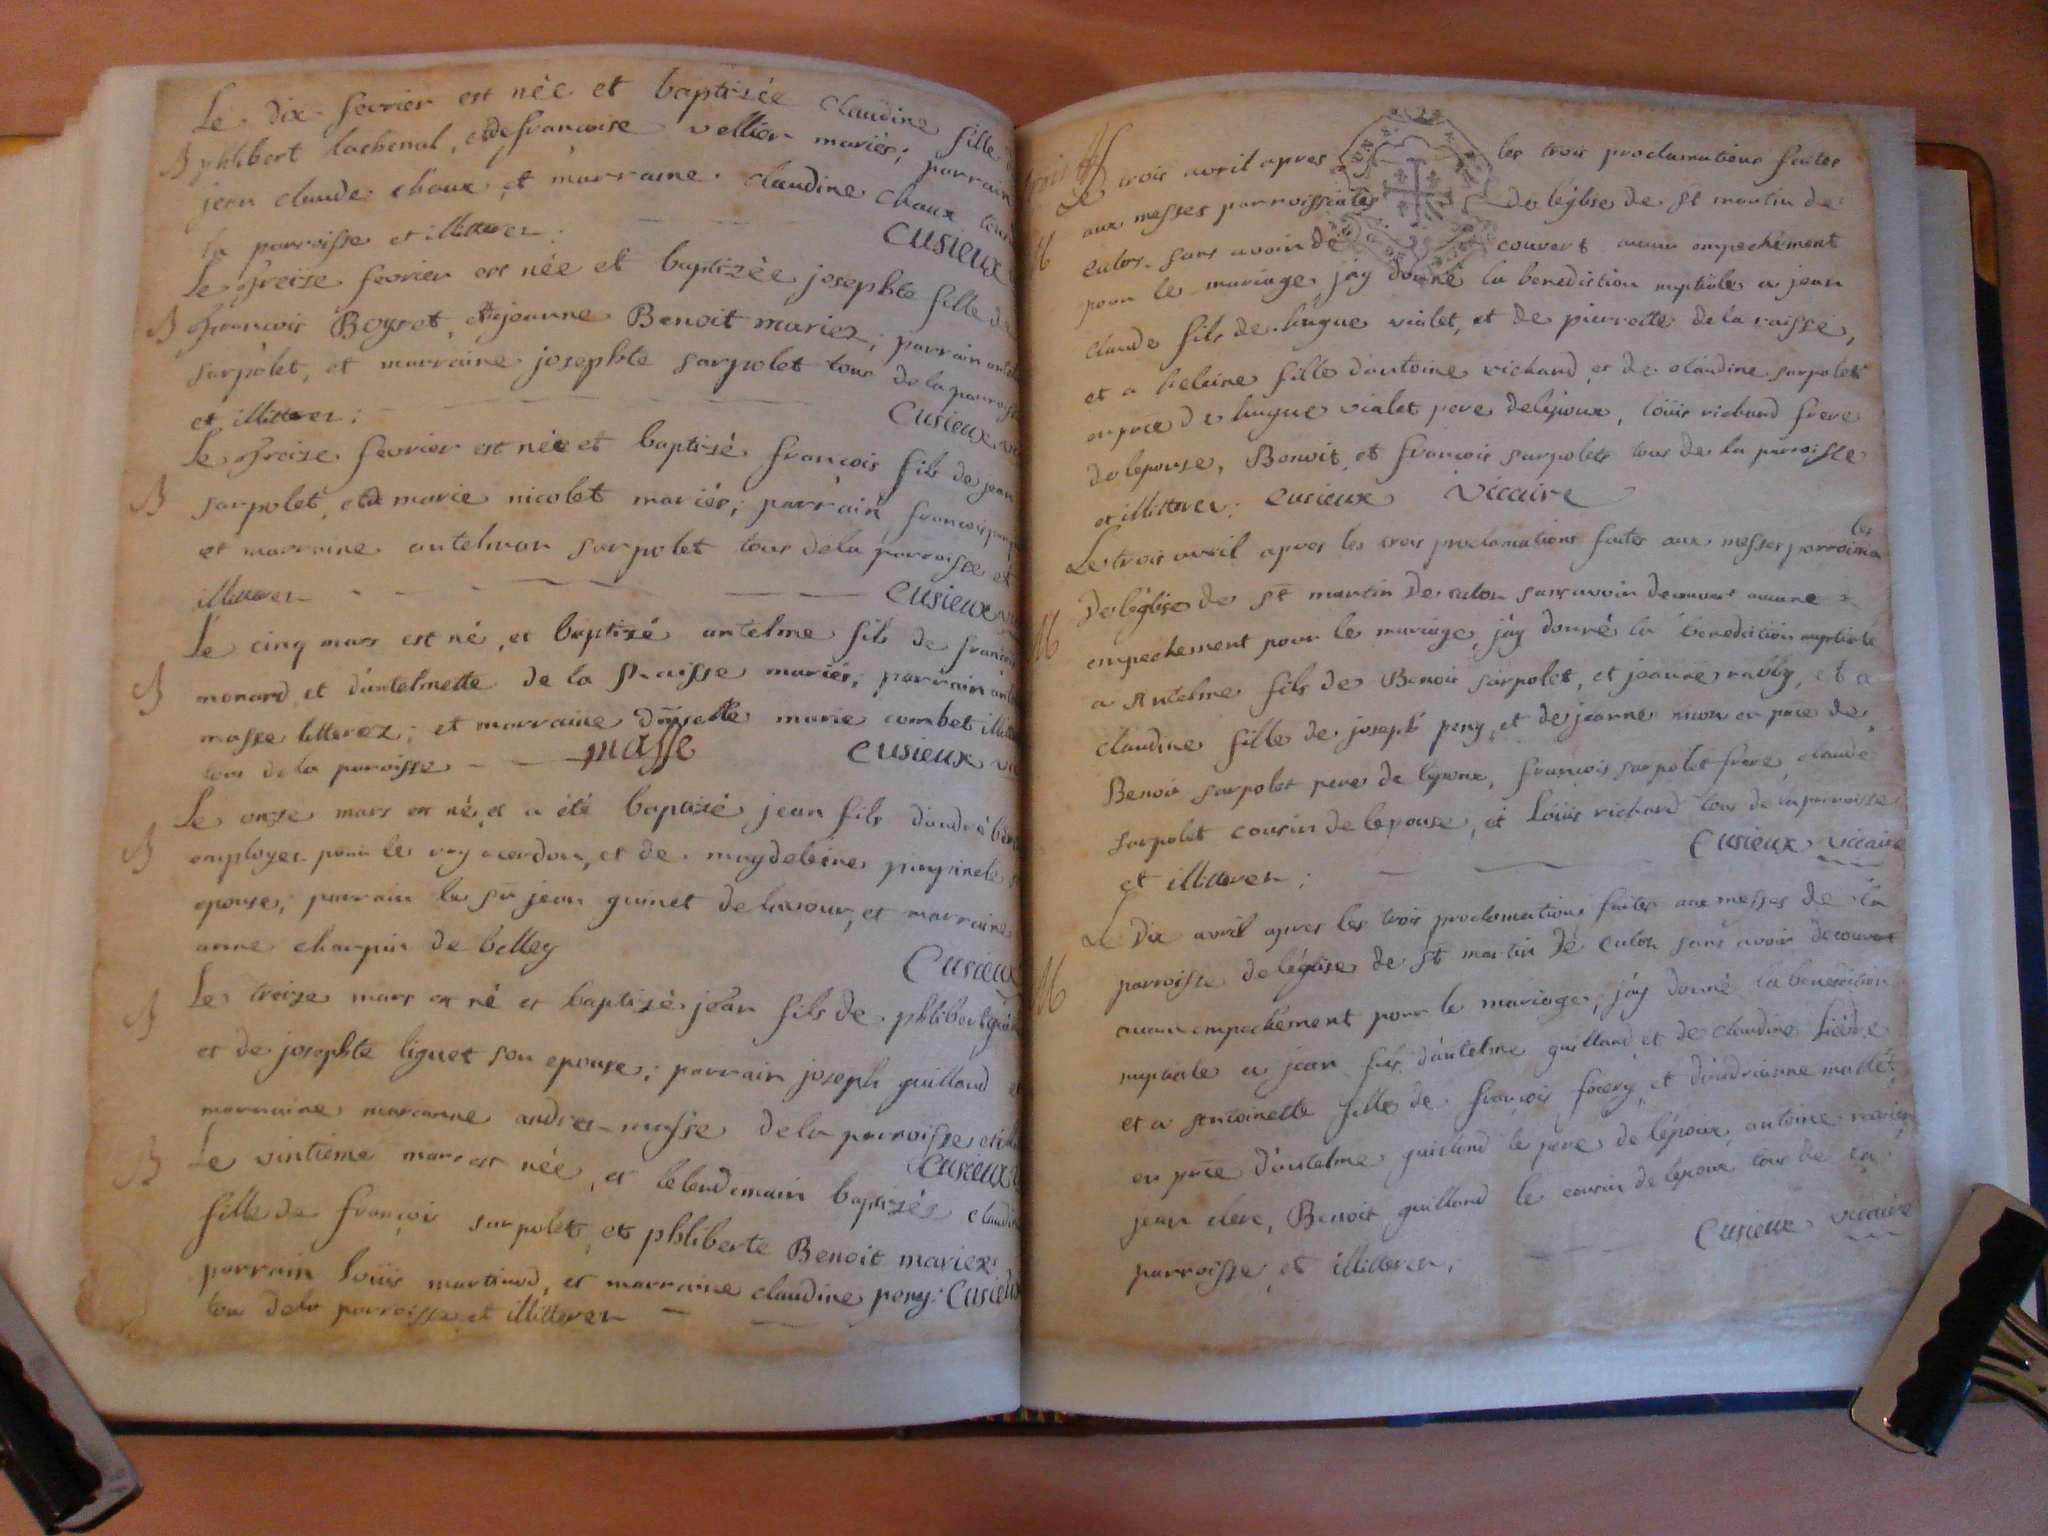 Le dix fevrier est née et baptizée claudine fille
B phlibert lachenal, et de francoise vellier mariés; parrain
jean claude chaux et marraine claudine chaux tous
la parroisse et illitterez.
Cusieux
Le treize fevrier est née et baptizée josephte fille de
B francois Boyrot, et jeanne Benoit mariez; parrain
sarpolet, et marraine josephte sarpolet tous de la parroisse
et illitterez;
Cusieux
Le treize fevrier est née et baptizé francois fils de jean
B sarpolet, et de marie nicolet mariés; parrain francois
et marraine antelman sarpolet tous de la parroisse et
illitterez
Cusieux
Le cinq mars est né, et baptizé antelme fils de francois
B monard, et d'antelmette de la fraisse mariés; parrain
masse litterez; et marraine marie combet
tous de la paroisse masse Cusieux
Le onze mars est né, et a été baptizé jean fils d'andré
B employer pour le roy a cerdon, et de magdeleine
epouse; parrain le sr jean guinet de lavour, et marraine
anne charpin de belley
Cusieux
B Le treize mars est né et baptizé jean fils de phlibert
et de josephte liguet son epouse; parrain joseph guilland et
marraine marianne andrer masse de la parroisse
Cusieux
B Le vintieme mars est née, et le lendemain baptizée claudine
fille de francois sarpolet, et phliberte Benoit mariez
parrain loüis martinod, et marraine claudine pony. Cusieux
tous de la parroisse et illitterez
Le trois avril apres les trois proclamations faites
aux messes parroissiales de l'église de st martin de
M culoz sans avoir de couvert aucun empechement
pour le mariage, j'ay donné la benediction nuptiale a jean
claude fils de hugue vialet, et de pierrette de la raisse,
et a heleine fille d'antoine richard et de claudine sarpolet
en pñce de hugue vialet pere de l'epoux, loüis richard frere
de l'epouse, Benoit et francois sarpolet tous de la parroisse
et illitterez; Cusieux vicaire
Le trois avril apres les trois proclamations faites aux messes parroissia
les
de l'église de st martin de culoz sans avoir decouvert aucune
M empechement pour le mariage, j'ay donné la benediction nuptiale
a Antelme fils de Benoit sarpolet, et jeanne ravby, et a
claudine fille de joseph pony, et de jeanne nicou en pñce de
Benoit sarpolet pere de l'epoux, francois sarpolet frere, claude
sarpolet cousin de l'epouse, et Loüis richard tous de la parroisse
et illitterez;
Cusieux vicaire
Le Dix avril apres les trois proclamations faites aux messes de la
parroisse de l'église de st martin de culoz sans avoir decouvert
M aucun empechement pour le mariage, j'ay donné la benediction
nuptiale a jean fils d'antelme guilland et de claudine
et a Antoinette fille de francois et d'andrianne
en pñce d'antelme guilland le pere de l'époux, antoine
jean clerc, Benoit guilland le cousin de l'epoux tous de la
parroisse et illitterez,
Cusieux vicaire